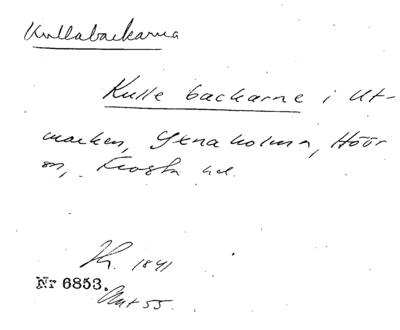 Kullabackarna
Kulle backarne i Ut-
marken, Stenaholma, Höör
sn, Frosta hd.
1841
Nr 6853.
Akt 55.